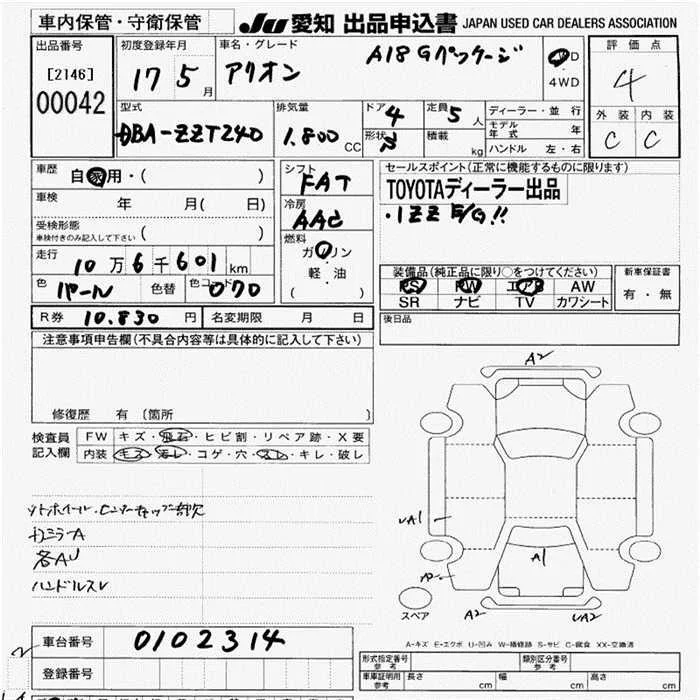 車内保管・守衛保管
JU 愛知 出品申込書 JAPAN USED CAR DEALERS ASSOCIATION
出品番号
[2146]
00042
初度登録年月
17 5 月
車名・グレード
アリオン A18 Gパッケージ
2WD
4WD
評価点
4
外装 内装
C C
型式
DBA-ZZT240
排気量
1.800 CC
ドア 4
形状
定員 5 人
積載 kg
ディーラー・並行
モデル年式 年
ハンドル 左・右
車歴 自家用・( )
車検 年 月( 日)
受検形態
車検付きのみ記入して下さい ( )
走行
10万6千601km
色 パール 色替 色コード 070
シフト
FAT
冷房
AAC
燃料
ガソリン
軽・油
( )
セールスポイント(正常に機能するものに限ります)
TOYOTAディーラー出品
・1ZZ E/G!!
装備品(純正品に限り○をつけてください)
PS PW エアB AW
SR ナビ TV カワシート
新車保証書
有・無
R券 10.830 円 名変期限 月 日
後日品
注意事項申告欄(不具合内容等は具体的に記入して下さい)
修復歴 有 〔箇所 〕
検査員
記入欄
FW キズ・飛石・ヒビ割・リペア跡・X要
内装 キズ・汚レ・コゲ・穴・スレ・キレ・破レ
各AU
ハンドルスレ
A2
UA1
AP
A1
A2
UA2
スペア
A-キズ E-エクボ U-凹み W-補修跡 S-サビ C-腐食 XX-交換済
車台番号 0102314
登録番号
形式指定番号
参考
類別区分番号
参考
車庫証明用
参考
長さ cm 幅 cm 高さ cm